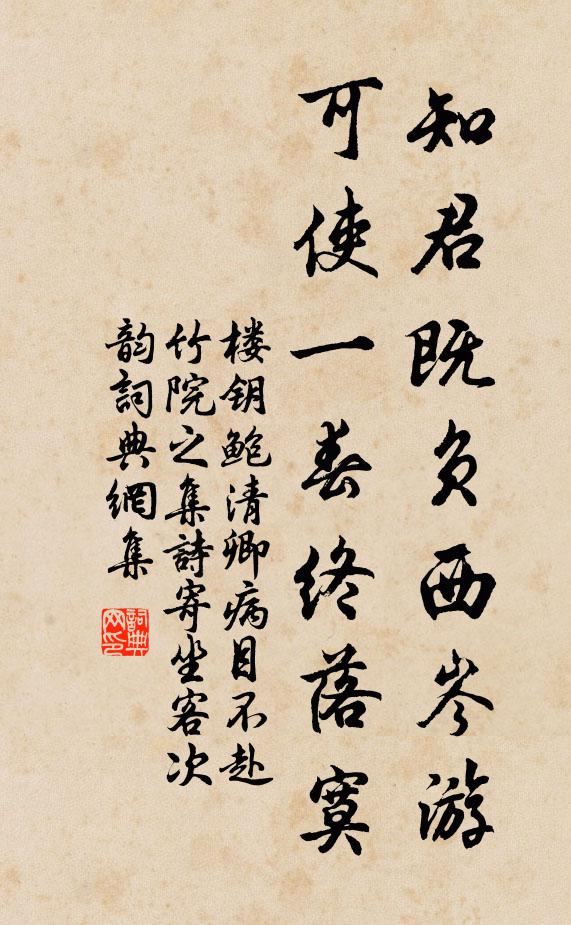 知君既负西岑游
可使一春终落寞
楼钥鲍清卿病目不赴
竹院之集詩寄坐客次
韵詞典網集
詞典网印